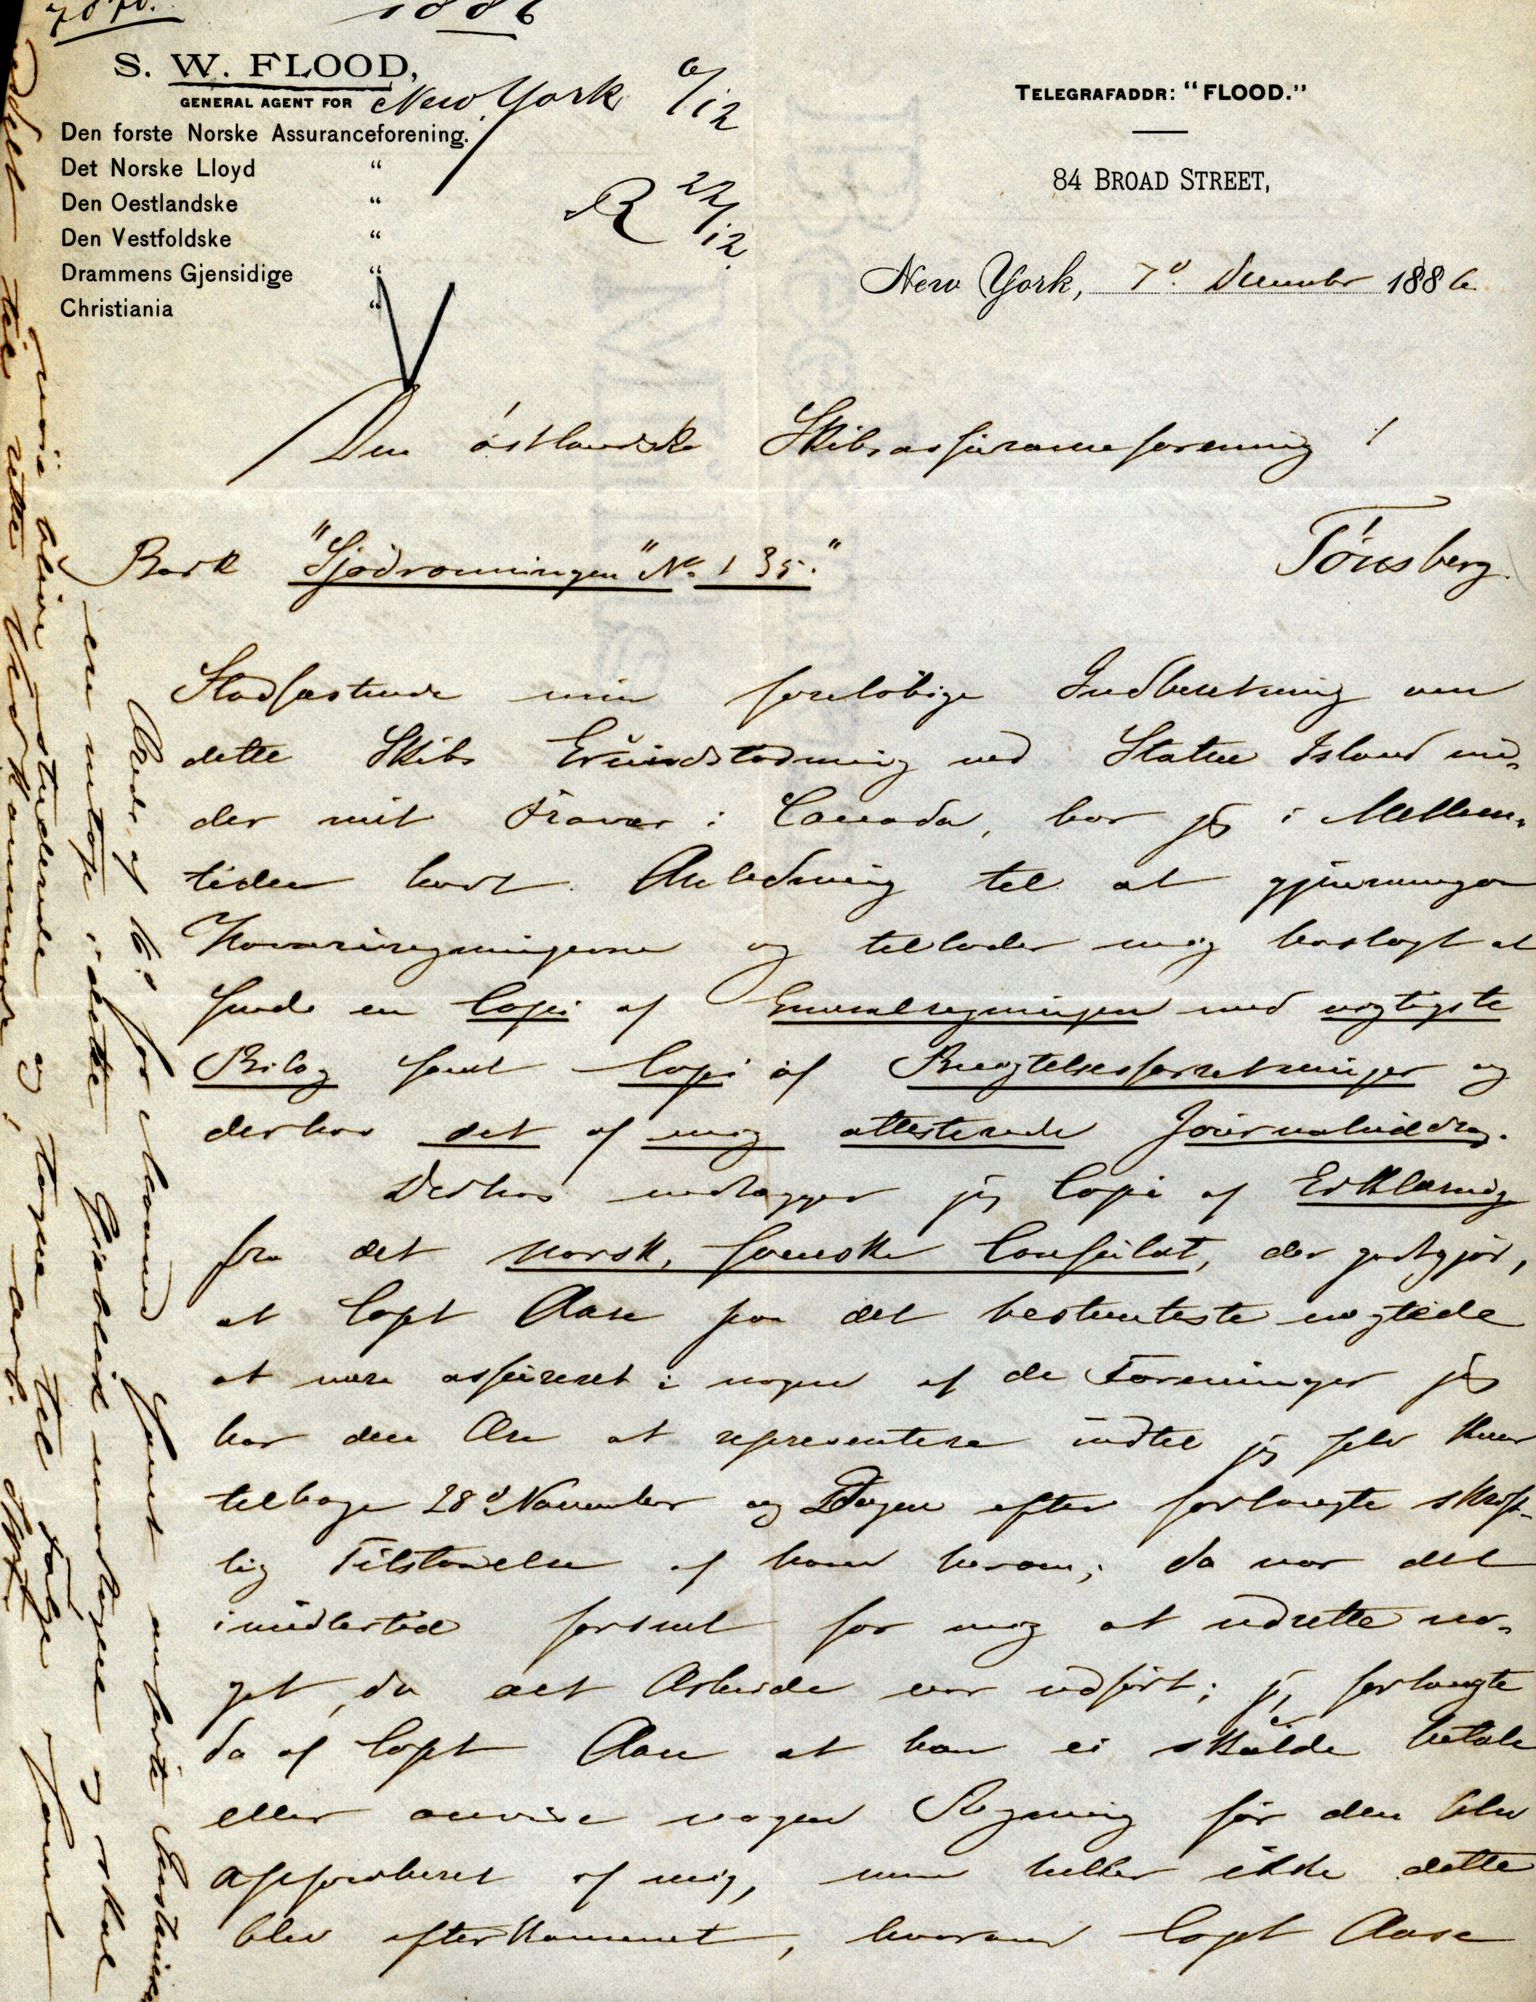 7870.
1886
S. W. FLOOD,
GENERAL AGENT FOR
Den forste Norske Assuranceforening.
Det Norske Lloyd "
Den Oestlandske "
Den Vestfoldske "
Drammens Gjensidige "
Christiania "
New York 6/12
R 22/12.
TELEGRAFADDR: "FLOOD."
84 BROAD STREET,
New York, 7d December 1886
Den östlandske Skibsassuranceforening!
Tönsberg.
Bark "Sjödronningen" No. 135."
Stadfæstende min foreløbige Indberetning om
dette Skibs Grundstødning ved Staten Island un-
der mit Fravær i Canada, har jeg i Mellem-
tiden havt Anledning til at gjennemgaa
Havariregningerne og tillader mig herslagt at
sende en Copi af Generalregningen med vigtigste
Bilag samt Copi af Besigtelsesforretninger og
derhos det af mig attesterede Journaluddrag.
Derhos vedlægger jeg Copi af Erklæring
fra det norsk, svenske Consulat, der godtgjør,
at Capt Aase paa det bestemteste nægtede
at være assureret i nogen af de Foreninger jeg
har den Ære at representere indtil jeg selv kom
tilbage 28d November og Dagen efter forlangte skrift-
lig Tilstaaelse af ham herom; da var det
imidlertid forsent for mig at udrette no-
get, da alt Arbeide var udført; jeg forlangte
da af Capt Aase at han ei skulde betale
eller anvise nogen Regning før den blev
approberet af mig, men heller ikke dette
blev efterkommet, hvorom Capt Aase